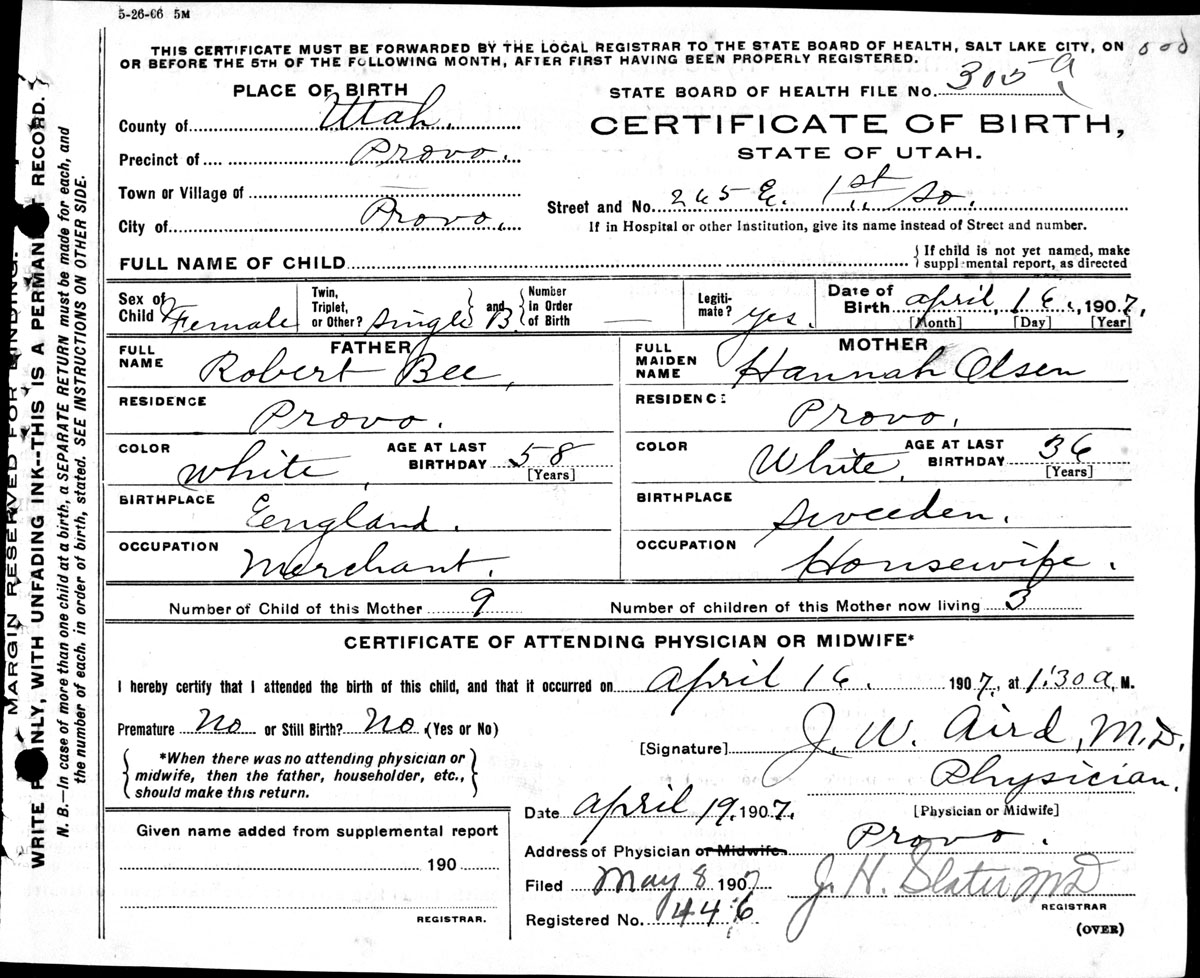 5-26-06 5M
THIS CERTIFICATE MUST BE FORWARDED BY THE LOCAL REGISTRAR TO THE STATE BOARD OF HEALTH, SALT LAKE CITY, ON
OR BEFORE THE 5TH OF THE FOLLOWING MONTH, AFTER FIRST HAVING BEEN PROPERLY REGISTERED.
PLACE OF BIRTH
STATE BOARD OF HEALTH FILE No. 305 a
County of Utah.
CERTIFICATE OF BIRTH,
STATE OF UTAH.
Precinct of Provo.
Town or Village of —
Street and No. 265 E. 1st So.
City of Provo.
If in Hospital or other Institution, give its name instead of Street and number.
FULL NAME OF CHILD
{ If child is not yet named, make
supplemental report, as directed
Sex of Child Female
Twin, Triplet, or Other? Single and B { Number in Order of Birth —
Legiti-mate? Yes.
Date of Birth April, 16, 1907,
[Month] [Day] [Year]
FATHER
FULL NAME Robert Bee,
MOTHER
FULL MAIDEN NAME Hannah Olsen
RESIDENCE Provo.
RESIDENCE Provo.
COLOR White, AGE AT LAST BIRTHDAY 58 [Years]
COLOR White, AGE AT LAST BIRTHDAY 36 [Years]
BIRTHPLACE Eengland.
BIRTHPLACE Sweeden.
OCCUPATION Merchant.
OCCUPATION Housewife.
Number of Child of this Mother 9
Number of children of this Mother now living 3
CERTIFICATE OF ATTENDING PHYSICIAN OR MIDWIFE*
I hereby certify that I attended the birth of this child, and that it occurred on April 16. 1907, at 1:30 a, M.
Premature No or Still Birth? No. (Yes or No)
[Signature] J. W. Aird, M.D.
{ *When there was no attending physician or
midwife, then the father, householder, etc.,
should make this return. }
Physician.
[Physician or Midwife]
Date April 19, 1907.
Given name added from supplemental report
190
REGISTRAR.
Address of Physician or Midwife Provo.
Filed May 8 1907 J. H. Slater MD
REGISTRAR
Registered No. 446
(OVER)
MARGIN RESERVED FOR BINDING.
WRITE P INLY, WITH UNFADING INK--THIS IS A PERMAN T RECORD.
N. B.—In case of more than one child at a birth, a SEPARATE RETURN must be made for each, and
the number of each, in order of birth, stated. SEE INSTRUCTIONS ON OTHER SIDE.